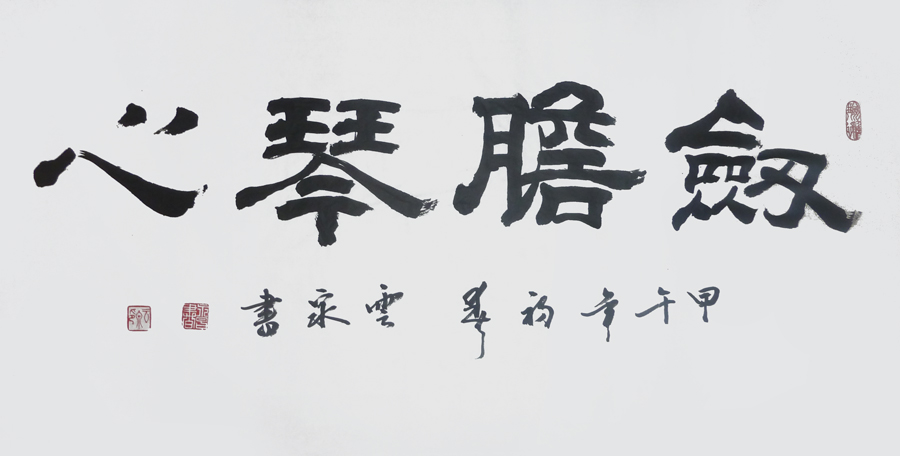 劒膽琴心
甲午年初春 雲泉書